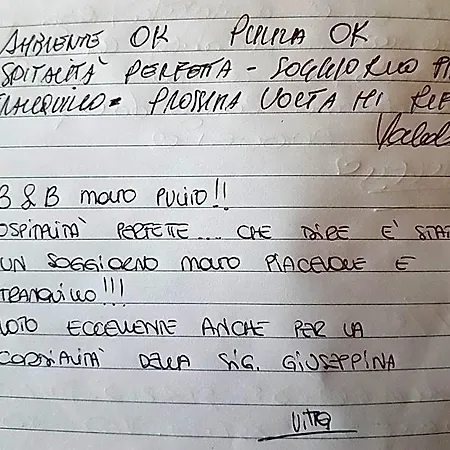 AMBIENTE OK PULIZIA OK
SPITALITÀ PERFETTA - SOGGIORNO
PROSSIMA VOLTA MI
B & B MOLTO PULITO!!
OSPITALITÀ PERFETTE... CHE DIRE È STAT
UN SOGGIORNO MOLTO PIACEVOLE E
TRANQUILLO!!!
VOTO ECCELLENTE ANCHE PER LA
CORDIALITÀ DELLA SIG. GIUSEPPINA